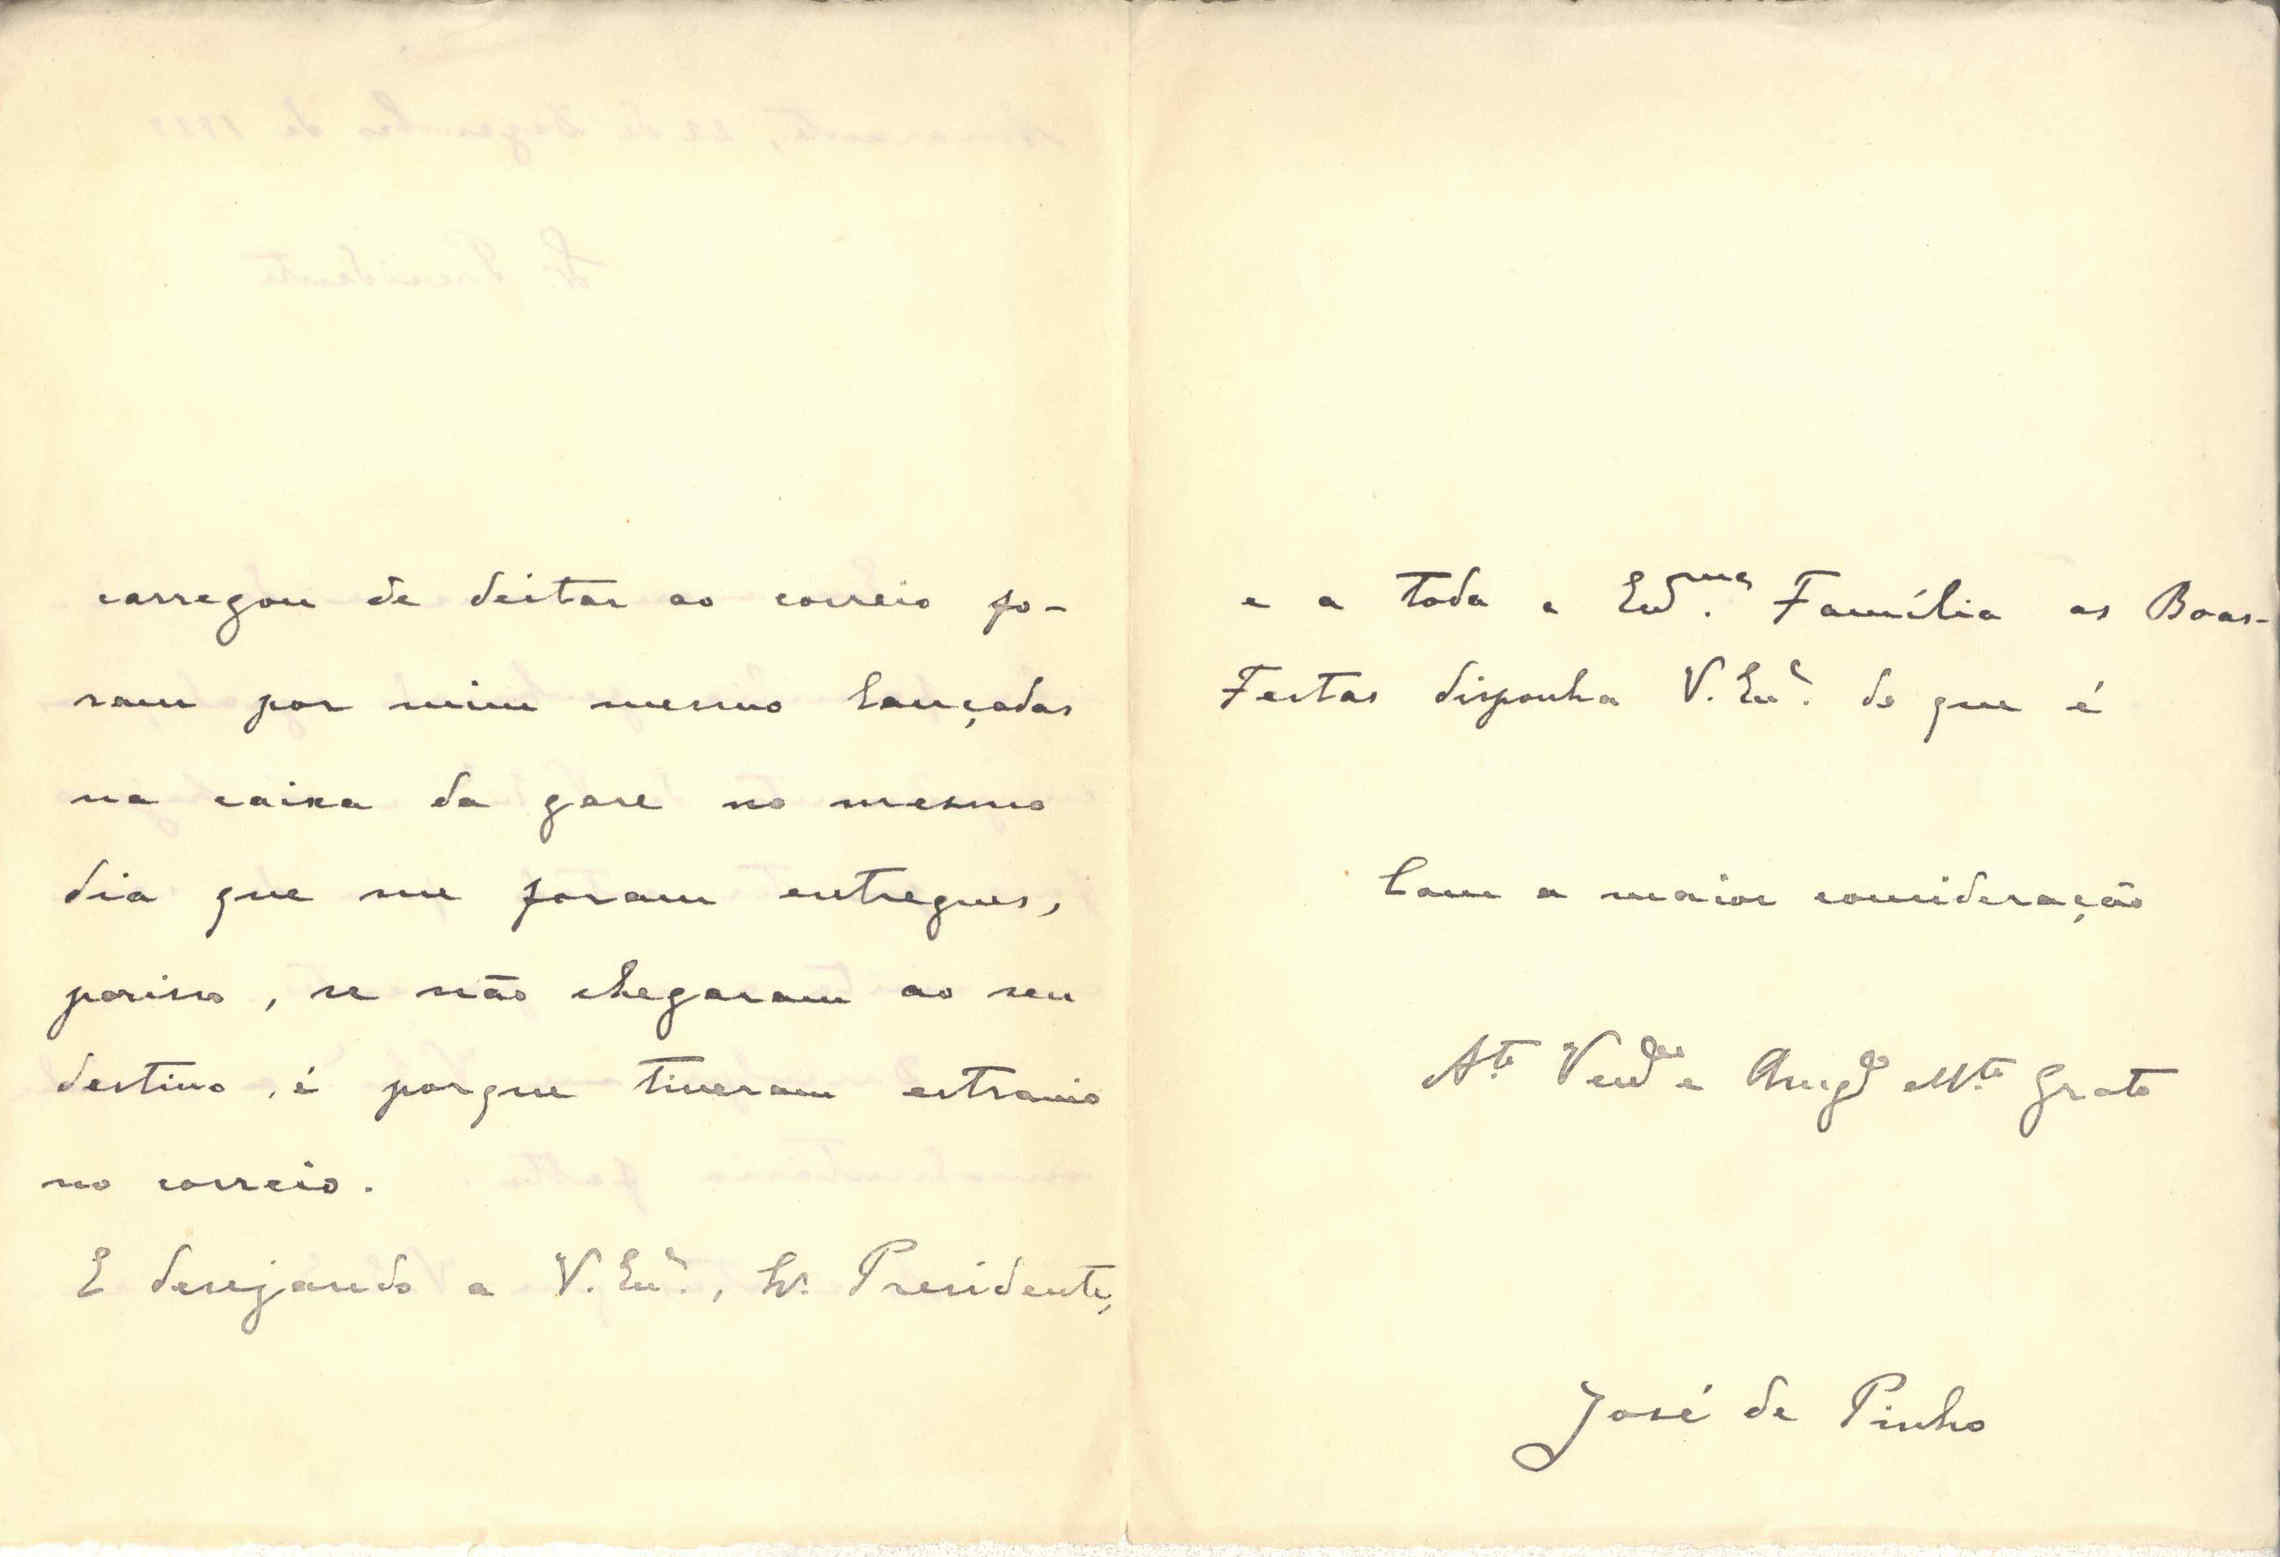 carregou de deitar ao correio fo-
ram por mim mesmo lançadas
na caixa da gare no mesmo
dia que me foram entregues,
porisso, se não chegaram ao seu
destino, é porque tiveram extravio
no correio.
E desejando a V. Exª., Sr. Presidente,
e a toda a Exma. Família as Boas-
Festas disponha V. Exª. do que é
Com a maior consideração
Atº Vendor e Amgº Mtº Grato
José de Pinho